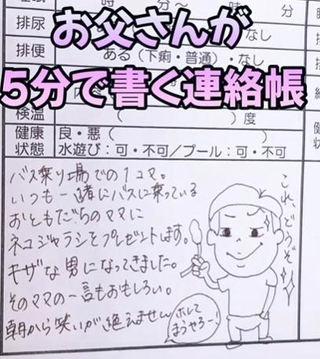 時 分〜 時 分
お父さんが
5分で書く連絡帳
排尿 なし
排便 ある（下痢・普通）・なし
検温 （ ）度
健康状態 良・悪（ ）
水遊び：可・不可／プール：可・不可
バス乗り場での1コマ。
いつも一緒にバスに乗っている
おともだちのママに
ネコジャラシをプレゼントします。
キザな男になってきました。
そのママの一言もおもしろい。
朝から笑いが絶えません
これ、どうぞ
ホレて
まうやろー！